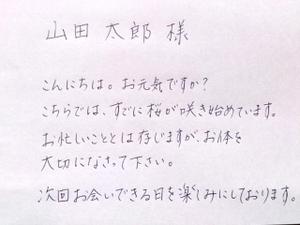 山田 太郎 様
こんにちは。お元気ですか?
こちらでは、すでに桜が咲き始めています。
お忙しいこととは存じますが、お体を
大切になさって下さい。
次回お会いできる日を楽しみにしております。